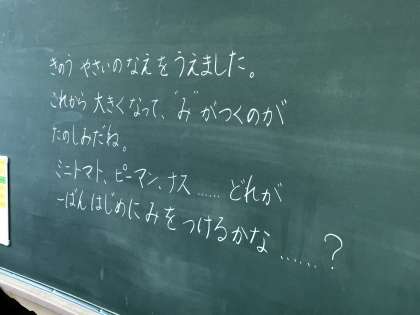 きのう やさいのなえをうえました。
これから 大きくなって、"み"がつくのが
たのしみだね。
ミニトマト、ピーマン、ナス……どれが
一ばんはじめにみをつけるかな……?